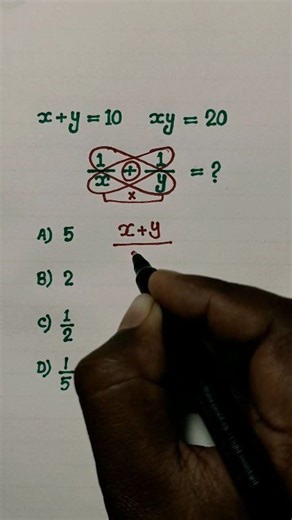 x+y=10 xy=20
1/x + 1/y = ?
x
A) 5 x+y
B) 2
C) 1/2
D) 1/5